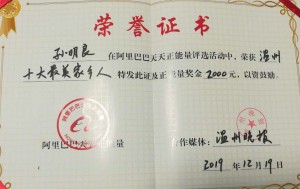 荣誉证书
孙明良 在阿里巴巴天天正能量评选活动中，荣获 温州
十大最美家乡人 特发此证及正能量奖金 2000 元，以资鼓励。
阿里巴巴天天正能量
合作媒体：温州晚报
2019 年 12 月 19 日